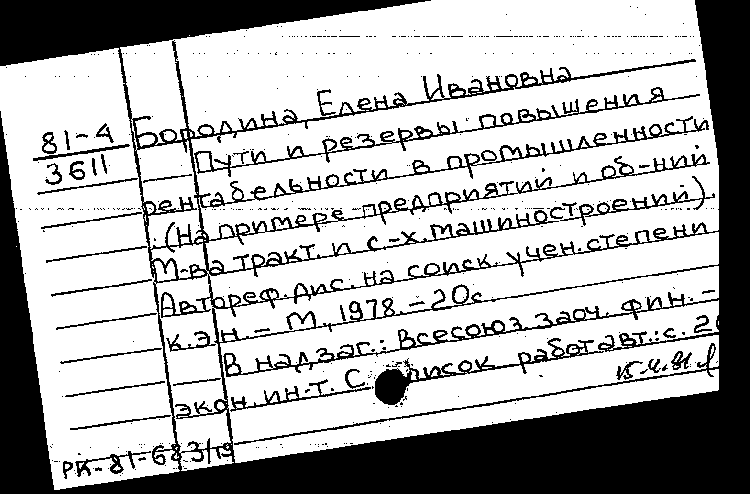 81-4
3611
Бородина, Елена Ивановна
Пути и резервы повышения
рентабельности в промышленности
. (На примере предприятий и об-ний
М-ва тракт. и с-х. машиностроений).
Автореф. дис. на соиск. учен. степени
к.э.н. - М., 1978. - 20с.
В надзаг.: Всесоюз. заоч. фин. -
экон. ин-т. Список работ авт.: с. 20
15.4.81
РК-81-683/19